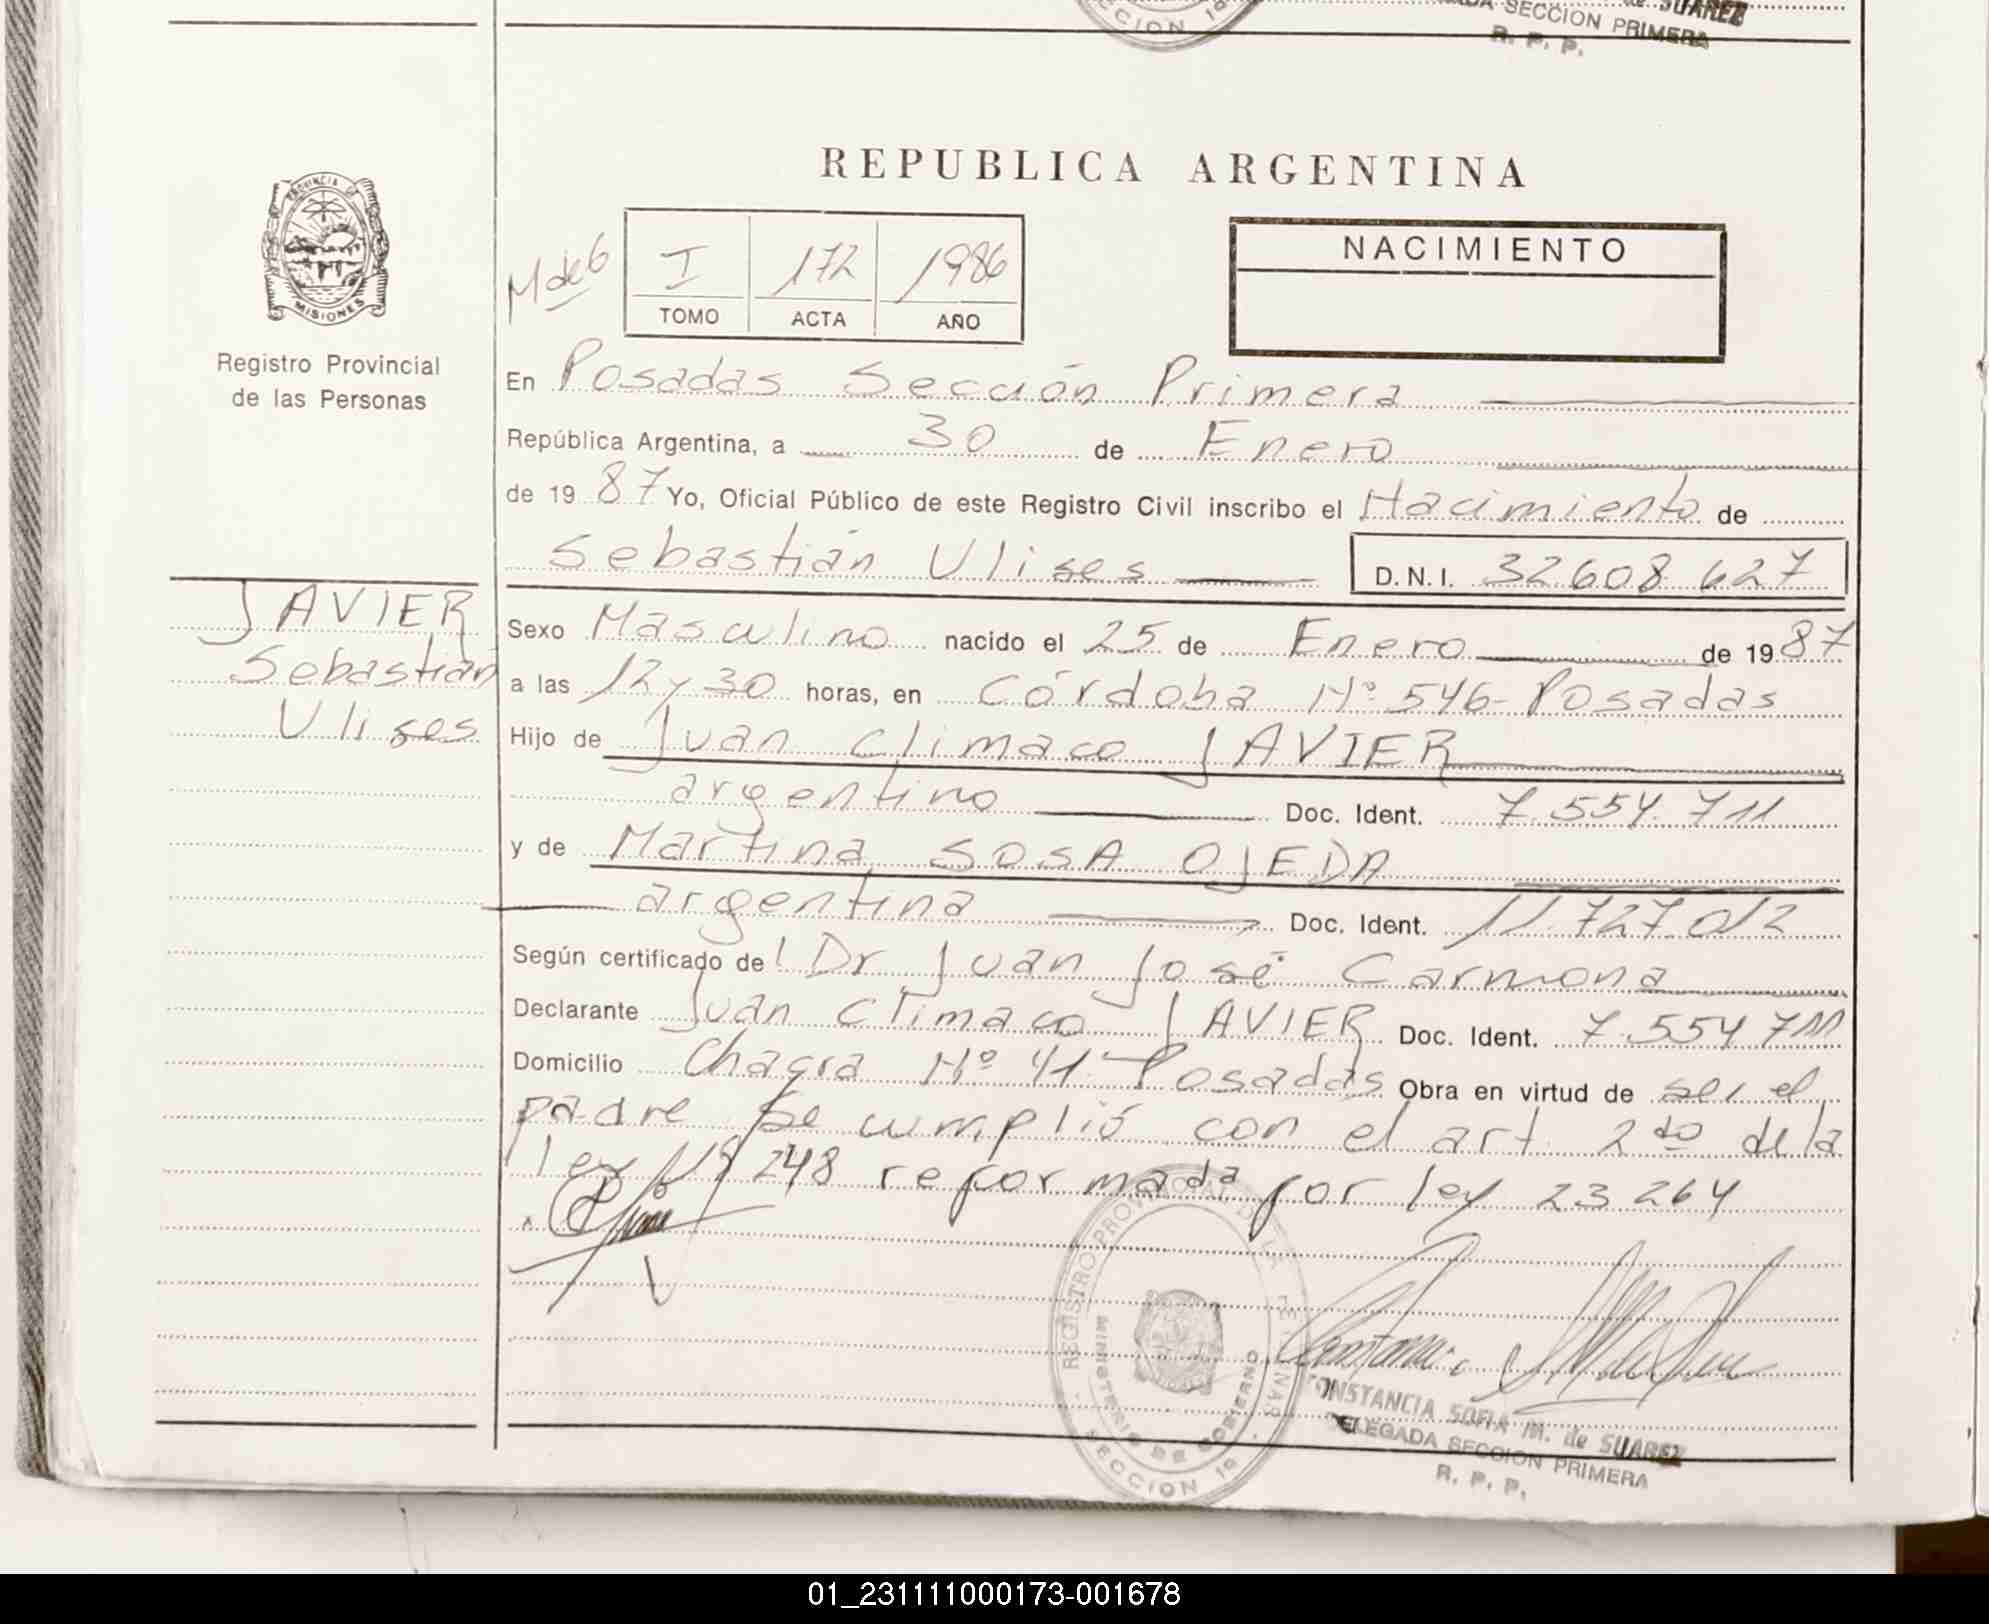 de SUAREZ
SECCION PRIMERA
R. P. P.
CCION 1ª
REPUBLICA ARGENTINA
PROVINCIA DE
MISIONES
Registro Provincial
de las Personas
M de 6
I 172 1986
TOMO ACTA AÑO
NACIMIENTO
En Posadas Sección Primera
República Argentina, a 30 de Enero
de 19 87 Yo, Oficial Público de este Registro Civil inscribo el Nacimiento de
Sebastián Ulises D.N.I. 32.608.627
JAVIER
Sebastián
Ulises
Sexo Masculino nacido el 25 de Enero de 19 87
a las 12 y 30 horas, en Córdoba Nº 546- Posadas
Hijo de Juan Climaco JAVIER
argentino Doc. Ident. 7.554.711
y de Martina SOSA OJEDA
argentina Doc. Ident. 11.727.012
Según certificado del Dr Juan José Carmona
Declarante Juan Climaco JAVIER Doc. Ident. 7.554 711
Domicilio Chacra Nº 41- Posadas Obra en virtud de ser el
padre Se cumplió con el art. 2do de la
ley 18 248 reformada por ley 23 264
REGISTRO PROVINCIAL DE LAS PERSONAS
MINISTERIO DE GOBIERNO
SECCION 1ª
CONSTANCIA SOFIA M. de SUAREZ
DELEGADA SECCION PRIMERA
R. P. P.
01_231111000173-001678